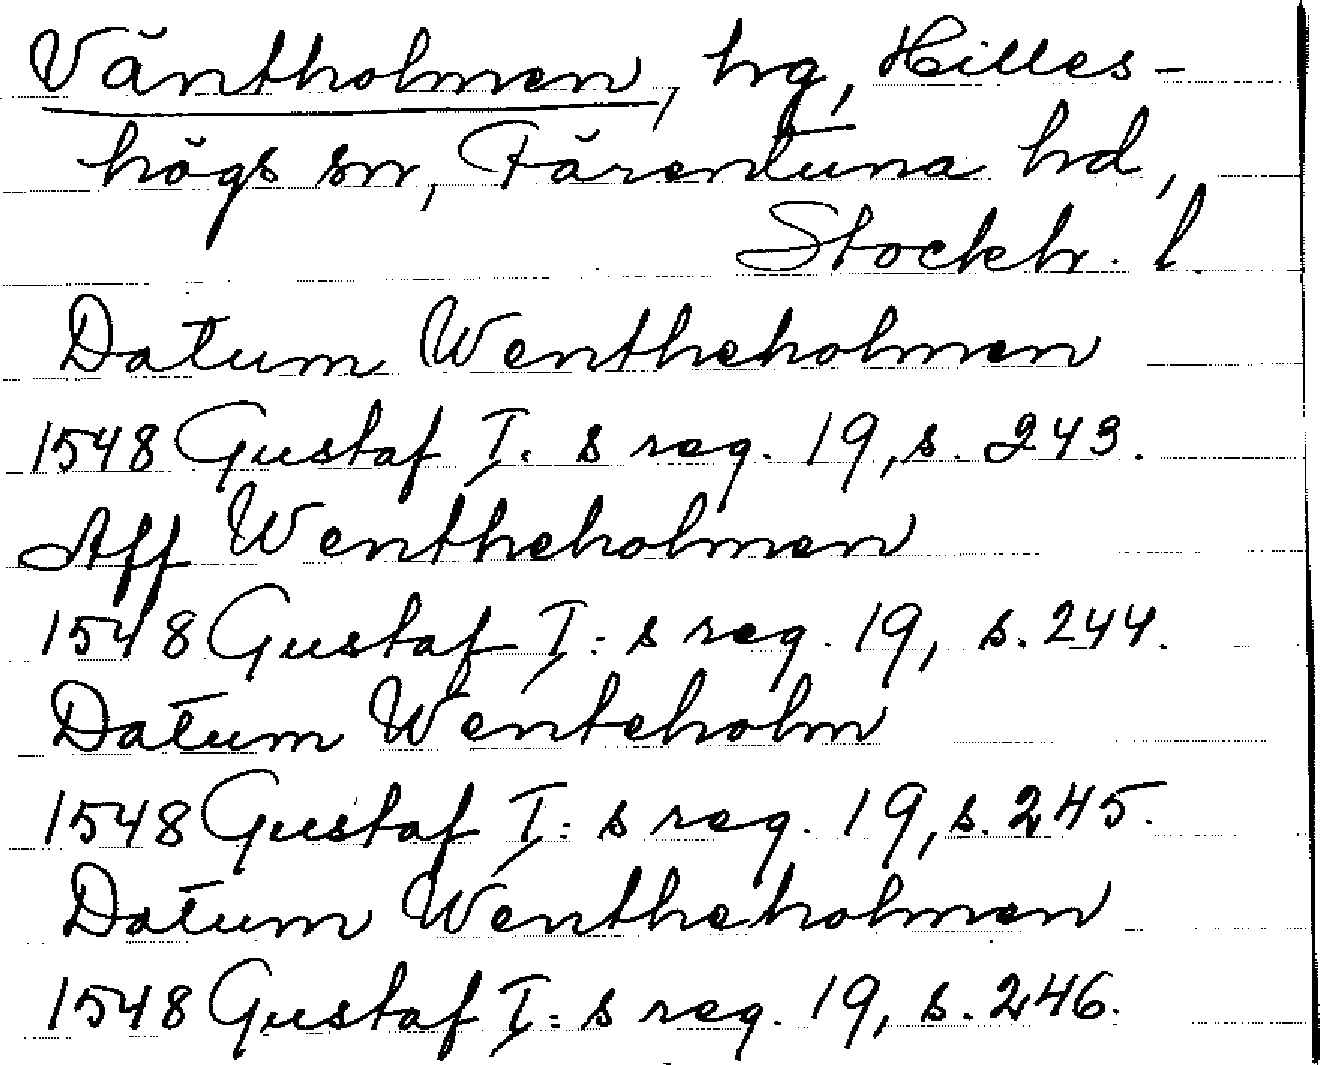 Väntholmen, hrg, Hilles-
högs sn, Färentuna hd,
Stockh. l.
Datum Wentheholmen
1548 Gustaf I:s reg. 19, s. 243.
Aff Wentheholmen
1548 Gustaf I:s reg. 19, s. 244.
Datum Wenteholm
1548 Gustaf I:s reg. 19, s. 245.
Datum Wentheholmen
1548 Gustaf I:s reg. 19, s. 246.